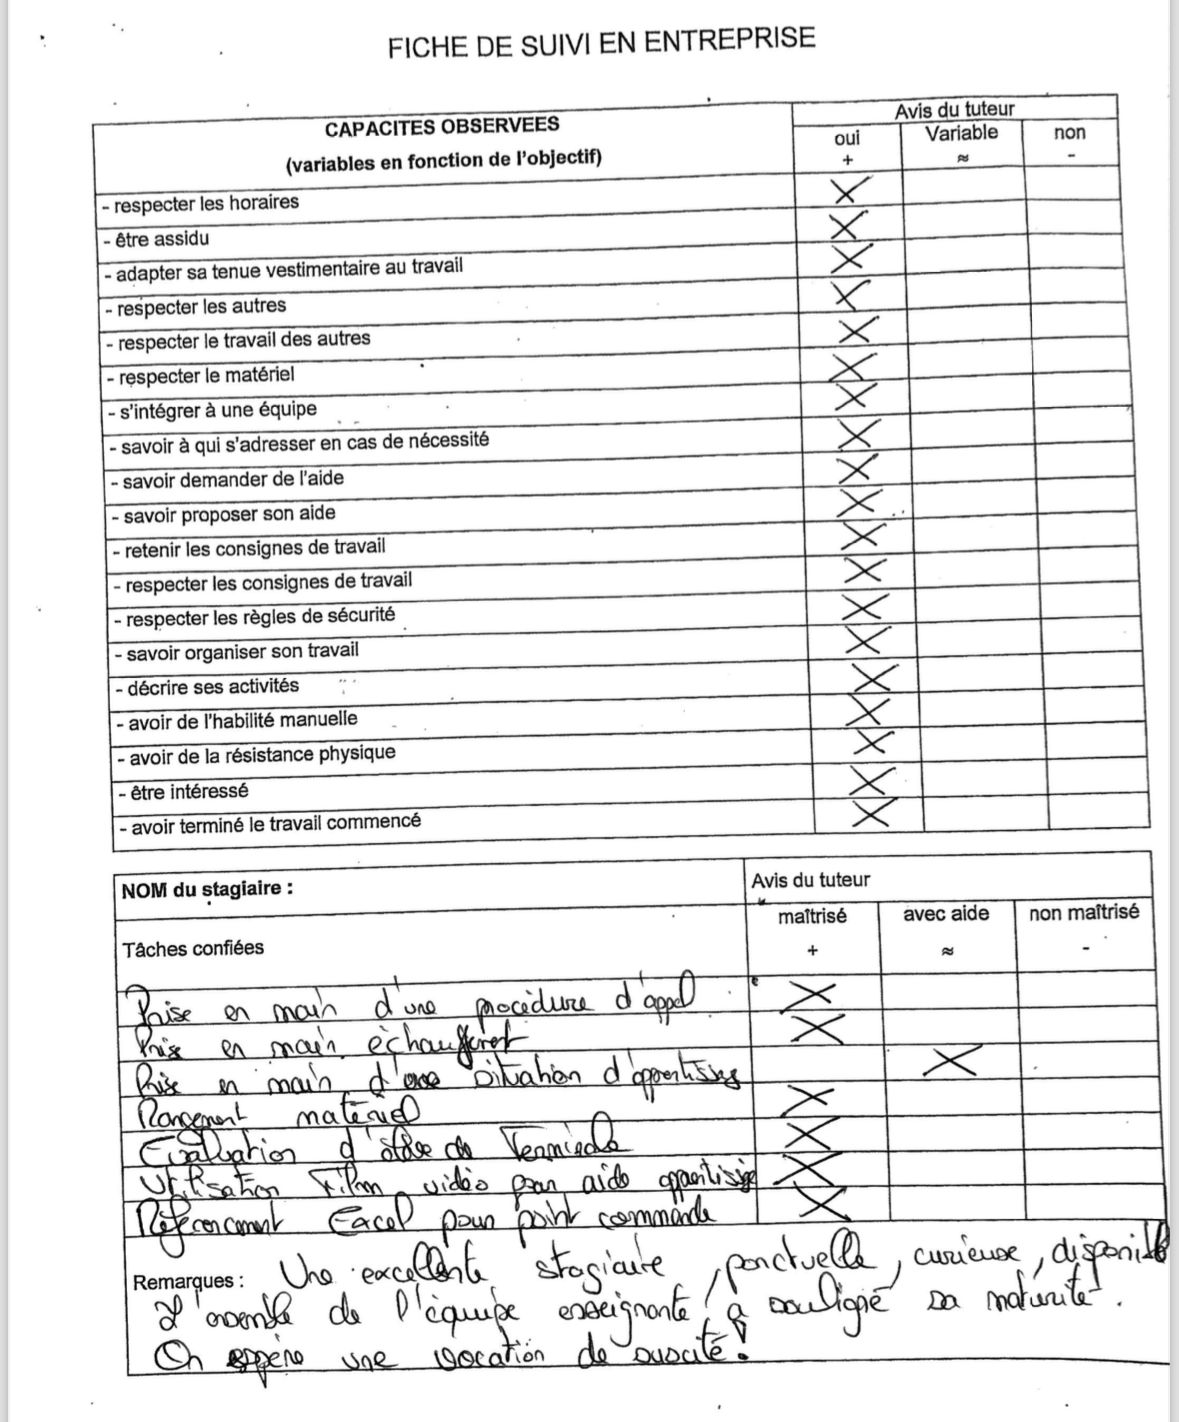 FICHE DE SUIVI EN ENTREPRISE
CAPACITES OBSERVEES
(variables en fonction de l'objectif)
Avis du tuteur
oui
+
Variable
≈
non
-
- respecter les horaires
- être assidu
- adapter sa tenue vestimentaire au travail
- respecter les autres
- respecter le travail des autres
- respecter le matériel
- s'intégrer à une équipe
- savoir à qui s'adresser en cas de nécessité
- savoir demander de l'aide
- savoir proposer son aide
- retenir les consignes de travail
- respecter les consignes de travail
- respecter les règles de sécurité
- savoir organiser son travail
- décrire ses activités
- avoir de l'habilité manuelle
- avoir de la résistance physique
- être intéressé
- avoir terminé le travail commencé
NOM du stagiaire :
Avis du tuteur
Tâches confiées
maîtrisé
+
avec aide
≈
non maîtrisé
-
Prise en main d'une procédure d'appel
Prise en main échauffement
Prise en main d'une situation d'apprentissage
Rangement matériel
Evaluation d'élève de Terminale
Utilisation Film vidéo pour aide apprentissage
Référencement Excel pour point commande
Remarques : Une excellente stagiaire, ponctuelle, curieuse, disponible
L'ensemble de l'équipe enseignante a souligné sa maturité.
On espère une vocation de suscité !